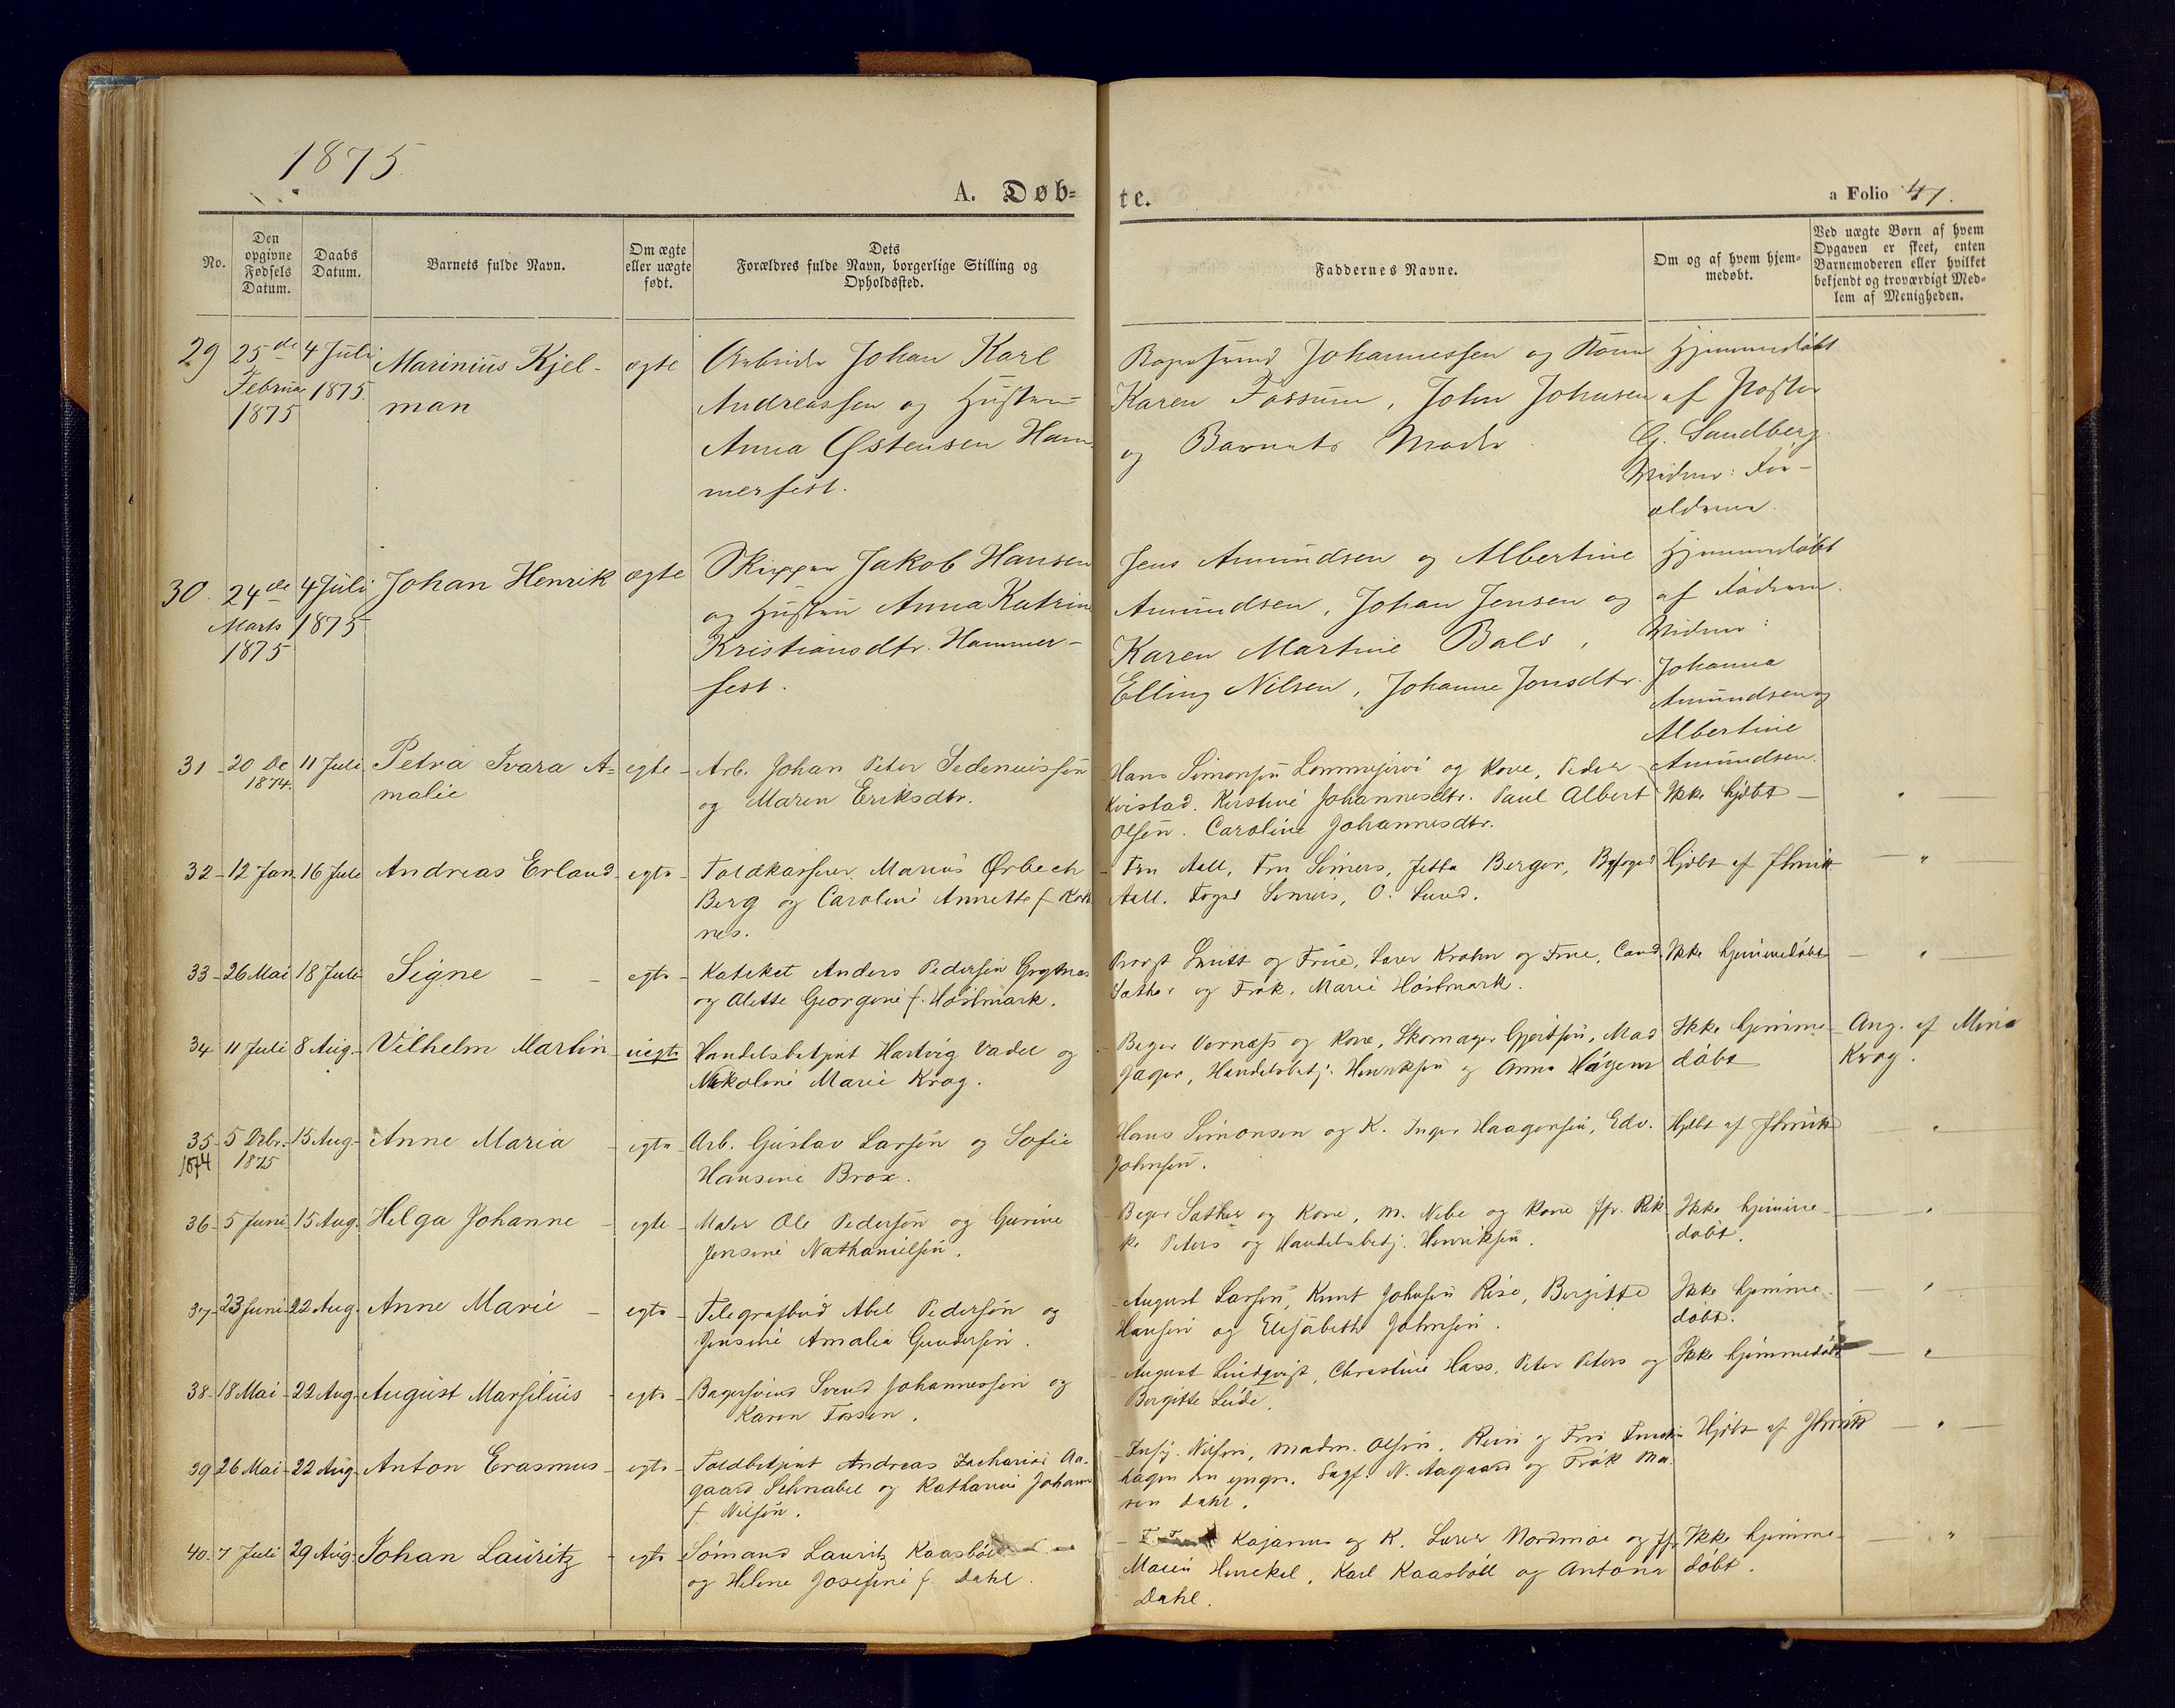 1875
A. Døb=
te.
a Folio 41.
No.
Den
opgivne
Fødsels
Datum.
Daabs
Datum.
Barnets fulde Navn.
Om ægte
eller uægte
født.
Dets
Forældres fulde Navn, borgerlige Stilling og
Opholdssted.
Faddernes Navne.
Om og af hvem hjem=
medøbt.
Ved uægte Børn af hvem
Opgaven er skeet, enten
Barnemoderen eller hvilket
bekjendt og troværdigt Med=
lem af Menigheden.
29
25de
Februar
1875
4 Juli
1875.
Marinius Kjel-
man
ægte
Arbeider Johan Karl
Andreassen og Hustru
Anna Østensen Ham
merfest.
Johannessen og Kone
Karen Fossum, John Johnsen
og Barnets Moder
Hjemmedøbt
af Pastor
G. Sandberg.
Vidner: For-
ældrene.
30.
24de
Marts
1875
4 Juli
1875
Johan Henrik
ægte
Skipper Jakob Hansen
og Hustru Anna Katrine
Kristiansdtr. Hammer-
fest.
Jens Amundsen og Albertine
Amundsen, Johan Jensen og
Karen Martine Bals,
Elling Nilsen, Johanne Jonsdtr.
Hjemmedøbt
af Faderen.
Vidner:
Johanna
Amundsen og
Albertine
Amundsen.
31
20 De
1874.
11 Juli
Petra Ivara A=
malie
egte
Arb. Johan Peter
og Maren Eriksdtr.
Hans Simonsen og Kone, Peder
Kvistad. Kirstine Johannesdtr. Paul Albert
Olsen. Caroline Johannesdtr.
Ikke hjdbt
32
12 Jan
16 Juli
Andreas Erland
egte
Toldkasserer Marius Ørbech
Berg og Caroline Annette f.
nes.
Fru Aall, Fru Berger,
Aall. Foged O. Lund.
Hjdbt af
33
26 Mai
18 Juli
Signe
egte
Kateket Anders Pedersen
og Alette Georgine f. Høstmark.
Provst Smitt og Frue, Lærer Krohn og Frue, Cand.
Sæther og Frøk. Marie Høstmark.
Ikke hjemmedøbt
34
11 Juli
8 Aug.
Vilhelm Martin
uegte
Handelsbetjent Hartvig Vadel og
Nikoline Marie Krog.
og Kone, Skomager Mad
Jager, Handelsbetj. Henriksen og Anna Hågensen
Ikke hjemme-
døbt
Ang. af
Krog.
35
1874
5 Dcbr.
1875
15 Aug.
Anne Maria
egte
Arb. Gustav Larsen og Sofie
Hansine Brox.
Hans Simonsen og K. Inger Haagensen, Edv.
Johnsen.
Hjdbt af
36
5 Juni
15 Aug.
Helga Johanne
egte
Maler Ole Pedersen og Gurine
Jensine Nathanielsen.
Bager Sæther og Kone, M. Nebe og Kone Jfr. Rik
ke Peters og Handelsbetj. Henriksen.
Ikke hjemme-
døbt.
37
23 Juni
22 Aug.
Anne Marie
egte
Telegrafbud Abel Pedersen og
Jensine Amalia Gundersen.
August Larsen, Knut Johnsen Risø, Bergitte
Hansen og Elisabeth Johnsen.
Ikke hjemme-
døbt.
38
18 Mai
22 Aug.
August Marsilius
egte
Bagersvend Svend Johannessen og
Karen Fossen.
August Lindqvist, Christine Hass, Peter Peters og
Bergitte
Ikke hjemmedøbt
39
26 Mai
22 Aug.
Anton Erasmus
egte
Toldbetjent Andreas Zacharias Aa-
gaard Schnabel og Katharine Johanne
f. Nilsen.
Nilsen, Madm. Olsen,
hagen den yngre, N. Aagaard og Frøk Ma
ren Dahl.
Hjdbt af
40.
7 Juli
29 Aug.
Johan Lauritz
egte
Sømand Lauritz Kaasbøll
og Helene Josefine f. Dahl.
Kajanus og K. Lærer og Jfr.
Karl Kaasbøll og Antona
Dahl.
Ikke hjemme-
døbt.